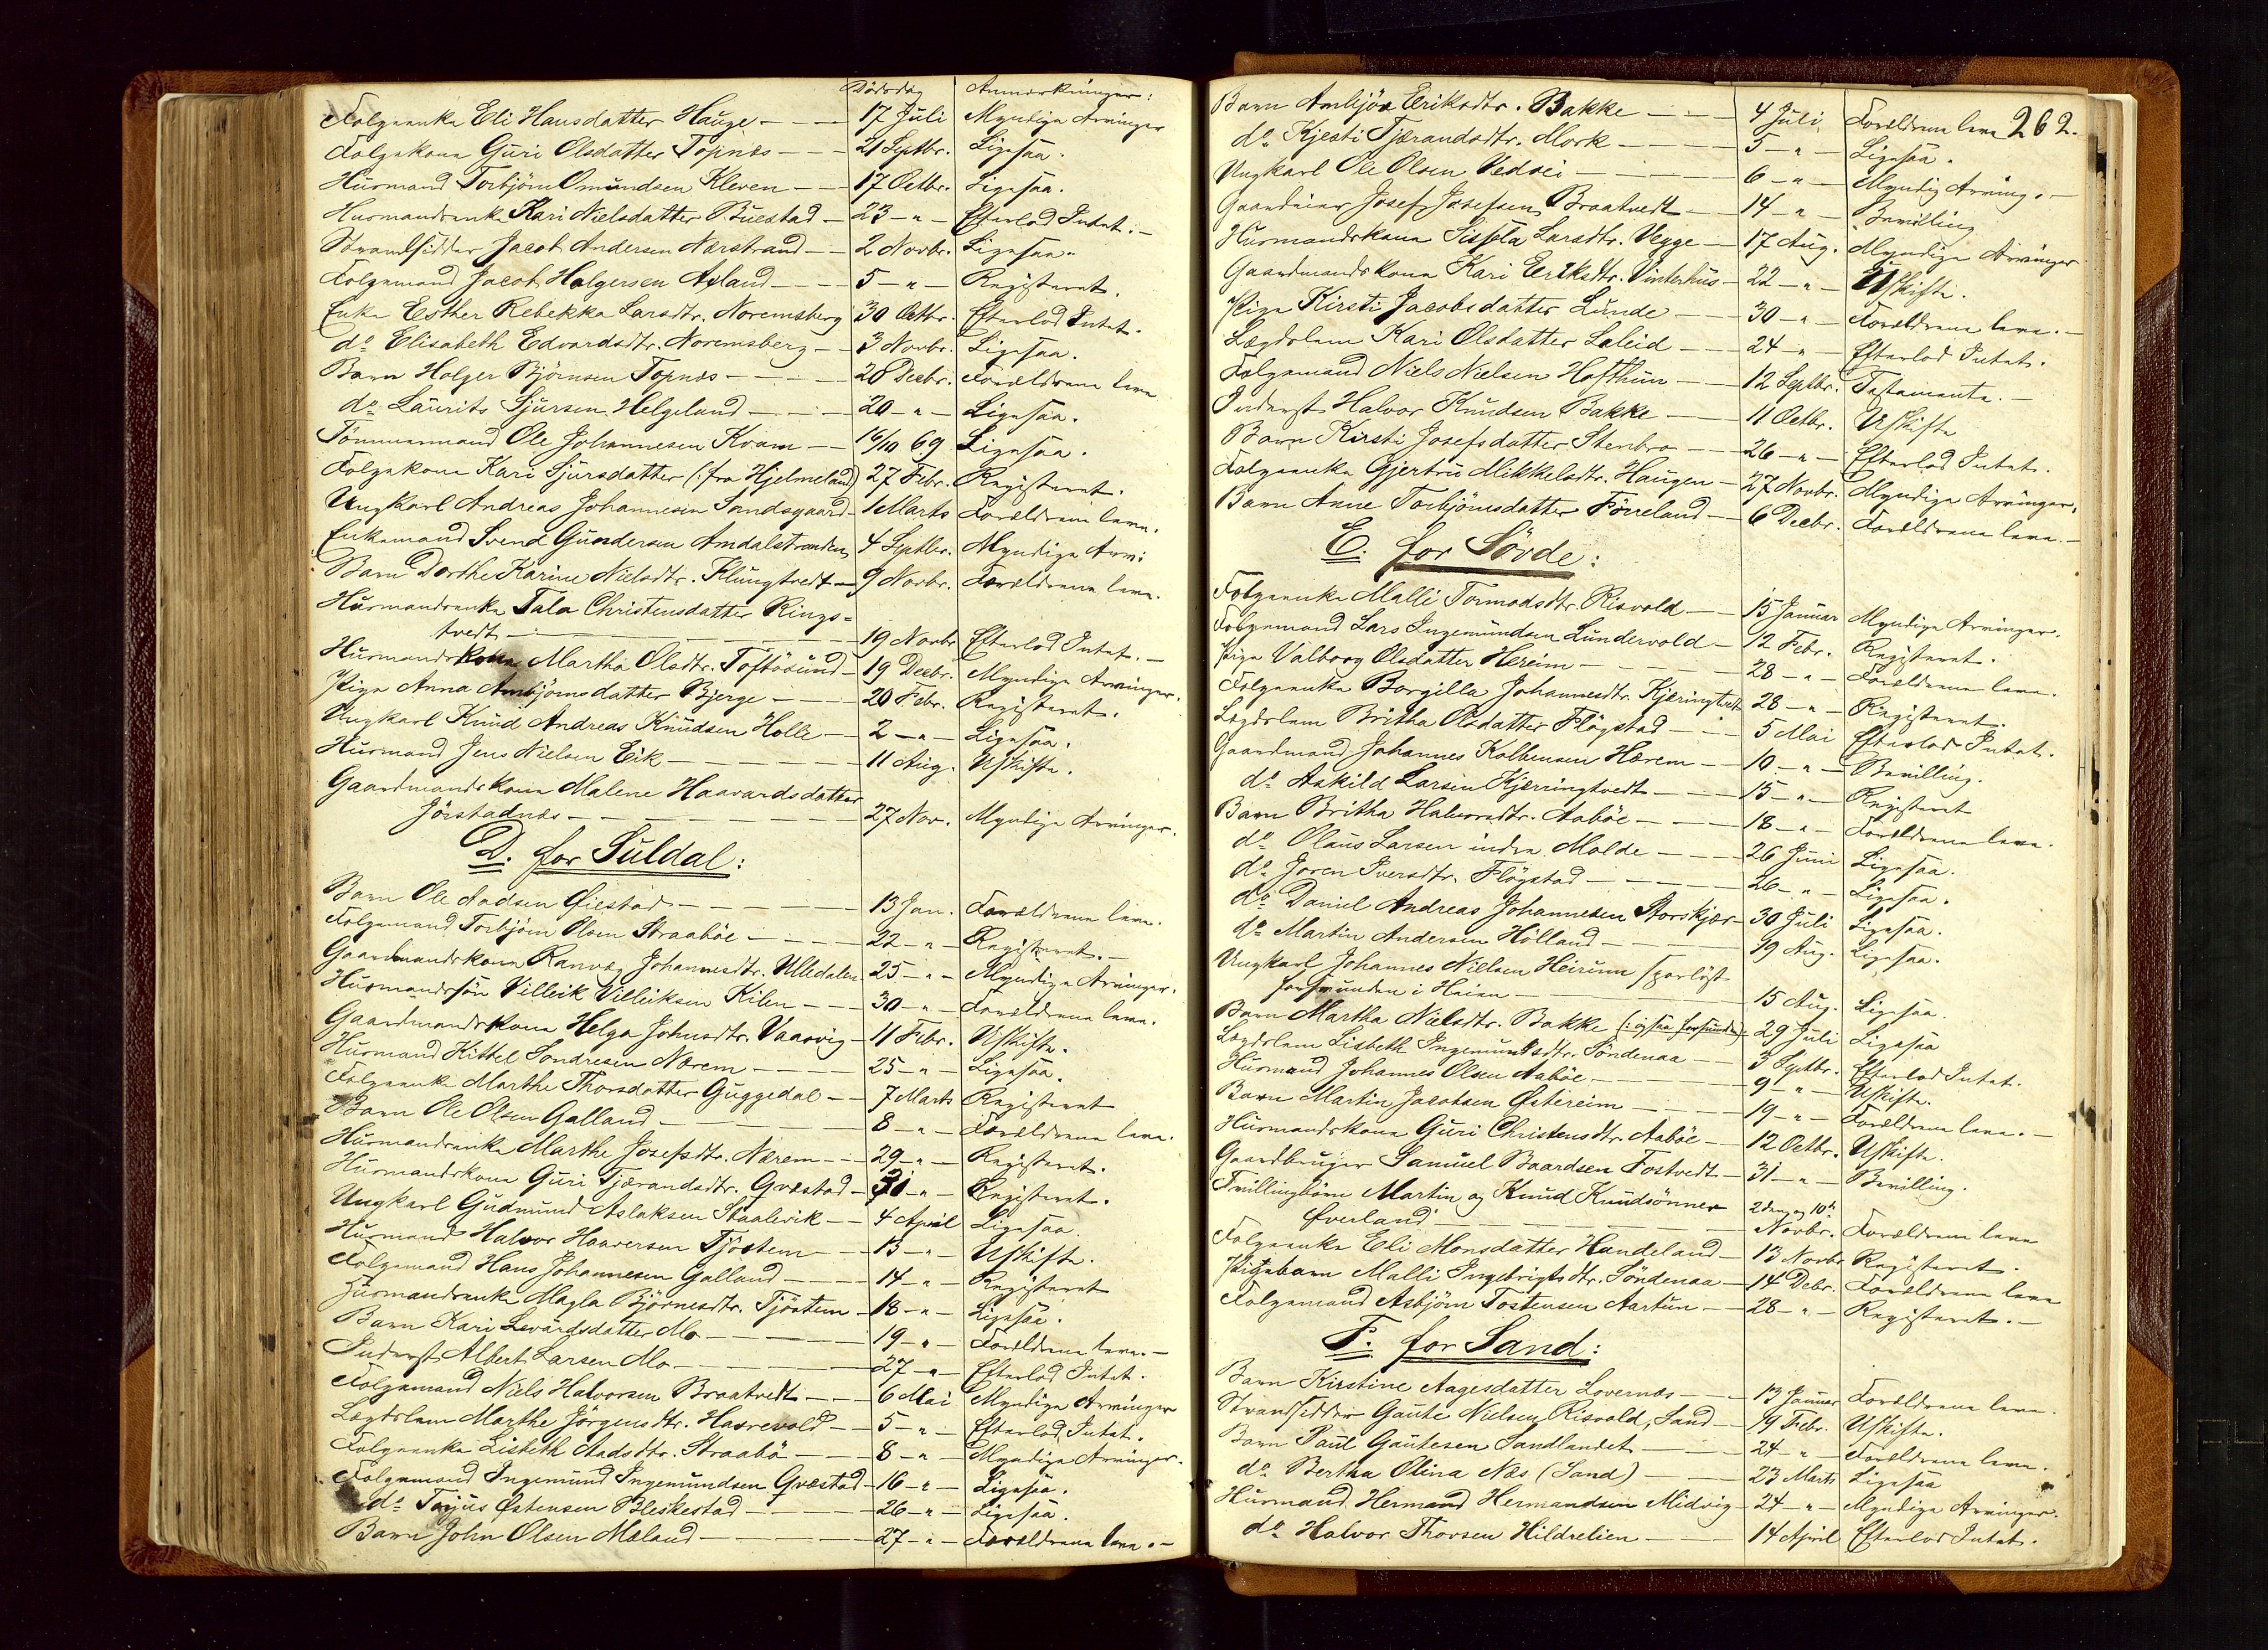 Dödsdag Anmærkninger:
Folgeenke Eli Hansdatter Hauge — 17 Juli Myndige Arvinger
Folgekone Guri Olsdatter Topnæs — 21 Septbr. Ligesaa.
Husmand Torbjörn Omundsen Kleven — 17 Octbr. Ligesaa.
Husmandsenke Kari Nielsdatter Buestad — 23 — " — Efterlod Intet. —
Strandsidder Jacob Andersen Nærstrand — 2 Novbr. Ligesaa.
Folgemand Jacob Holgersen Aaland — 5 — " — Registeret.
Enke Esther Rebekka Larsdtr. Noremsberg 30 Octbr. Efterlod Intet.
do Elisabeth Edvardsdtr. Noremsberg — 3 Novbr. Ligesaa.
Barn Holger Björnsen Topnæs — 28 Decbr. Forældrene leve
do Laurits Sjursen Helgeland — 20 — " — Ligesaa.
Tömmermand Ole Johannesen Kvam — 16/10 69 Ligesaa.
Folgekone Kari Sjursdatter (: fra Hjelmeland) 27 Febr. Registeret.
Ungkarl Andreas Johannesen Sandsgaard — 1 Marts Forældrene leve.
Enkemand Svend Gundersen Amdalstranden 4 Septbr. Myndige Arv:
Barn Dorthe Karine Nielsdtr. Klungtvedt — 9 Novbr. Forældrene leve.
Husmandsenke Tala Christensdatter Rings=
tvedt — 19 Novbr Efterlod Intet. —
Husmandskone Martha Olsdtr. Toftösund — 19 Decbr. Myndige Arvinger.
Pige Anna Anbjörnsdatter Bjerge — 20 Febr. Registeret.
Ungkarl Knud Andreas Knudsen Holle — 2 — " — Ligesaa.
Husmand Jens Nielsen Eik — 11 Aug. Uskifte.
Gaardmandskone Malene Haavardsdatter
Jörstadnæs — 27 Nov. Myndige Arvinger.
D. for Suldal:
Barn Ole Aadsen Öiestad — 13 Jan. Forældrene leve.
Folgemand Torbjörn Olsen Straaböe — 22 — " — Registeret. —
Gaardmandskone Ranveg Johannesdtr. Ulledalen 25 — " — Myndige Arvinger.
Husmandssön Villeik Villeiksen Kilen — 30 — " — Forældrene leve.
Gaardmandskone Helga Johnsdtr. Vaarvig — 11 Febr. Uskifte.
Husmand Kittel Sondresen Nærem — 25 — " — Ligesaa.
Folgeenke Marthe Thorsdatter Guggedal — 7 Marts Registeret
Barn Ole Olsen Galland — 8 — " — Forældrene leve.
Husmandsenke Marthe Josefsdtr. Nærem — 29 — " — Registeret.
Husmandskone Guri Tjærandsdtr. Gvæstad — 31 — " — Registeret.
Ungkarl Gudmund Aslaksen Staalevik — 4 April Ligesaa.
Husmand Halvor Haaversen Tjöstem — 13 — " — Uskifte.
Folgemand Hans Johannesen Galland — 14 — " — Registeret
Husmandsenke Magla Björnesdtr. Tjöstem — 18 — " — Ligesaa.
Barn Kari Levardsdatter Mo — 19 — " — Forældrene leve. —
Inderst Albert Larsen Mo — 27 — " — Efterlod Intet.
Folgemand Niels Halvorsen Braatvedt — 6 Mai Myndige Arvinger
Lægdslem Marthe Jörgensdtr. Havrevold — 5 — " — Efterlod Intet.
Folgeenke Lisbeth Aadsdtr. Straabö — 8 — " — Myndige Arvinger.
Folgemand Ingemund Ingemundsen Gvæstad — 16 — " — Ligesaa.
do Tarjus Östensen Bleskestad — 26 — " — Ligesaa.
Barn John Olsen Mæland — 27 — " — Forældrene leve. —
262.
Barn Anbjör Eriksdtr. Bakke — 4 Juli Forældrene leve
do Kjesti Tjærandsdtr. Mork — 5 — " — Ligesaa.
Ungkarl Ole Olsen Vedvei — 6 — " — Myndig Arving. —
Gaardeier Josef Josefsen Braatvedt — 14 — " — Bevilling
Husmandskone Sissela Larsdtr. Vegge — 17 Aug. Myndige Arvinger
Gaardmandskone Kari Eeriksdtr. Vinterhus — 22 — " — Uskifte.
Pige Kirsti Jacobsdatter Lunde — 30 — " — Forældrene leve. —
Lægdslem Kari Olsdatter Laleid — 24 — " — Efterlod Intet.
Folgemand Niels Nielsen Hofthun — 12 Septbr. Testamente. —
Inderst Halvor Knudsen Bakke — 11 Octbr. Uskifte
Barn Kirsti Josefsdatter Stenbro — 26 — " — Efterlod Intet.
Folgeenke Gjertru Mikkelsdtr. Haugen — 27 Novbr. Myndige Arvinger.
Barn Anne Torbjörnsdatter Förreland — 6 Decbr. Forældrene leve. —
E. for Sövde:
Folgeenke Malli Tormodsdtr. Risvold — 15 Januar Myndige Arvinger.
Folgemand Lars Ingemundsen Lundervold — 12 Febr. Registeret.
Pige Valborg Olsdatter Hereim — 28 — " — Forældrene leve.
Folgeenke Borgilla Johannesdtr. Kjeringtvet 28 — " — Registeret.
Lægdslem Britha Olsdatter Flögstad — 5 Mai Efterlod Intet.
Gaardmand Johannes Kolbensen Hærem — 10 — " — Bevilling.
do Askild Larsen Kjerringtvedt — 15 — " — Registeret
Barn Britha Halvorsdtr. Aaböe — 18 — " — Forældrene leve.
do Olaus Larsen indre Molde — 26 Juni Ligesaa.
do Joren Iversdtr. Flögstad — 26 — " — Ligesaa.
do Daniel Andreas Johannesen Storskjær — 30 Juli Ligesaa.
do Martin Andersen Hölland — 19 Aug. Ligesaa.
Ungkarl Johannes Nielsen Heirum sporlöst
forsvunden i Heien — 15 Aug. Ligesaa.
Barn Martha Nielsdtr. Bakke (: ogsaa forsvunden) 29 Juli Ligesaa
Lægdslem Lisbeth Ingemundsdtr. Söndenaa — 3 Septbr. Efterlod Intet.
Husmand Johannes Olsen Aaböe — 9 — " — Uskifte.
Barn Martin Jacobsen Östereim — 19 — " — Forældrene leve. —
Husmandskone Guri Christensdtr. Aaböe — 12 Octbr. Uskifte.
Gaardbruger Samuel Baardsen Fostvedt — 31 — " — Bevilling.
Tvillingbörn Martin og Knud Knudsönner 2den og 10de
Överland — Novbr. Forældrene leve
Folgeenke Eli Monsdatter Handeland — 13 Novbr Registeret.
Pigebarn Malli Ingebrigtsdtr. Söndenaa — 14 Debr. Forældrene leve
Folgemand Asbjörn Tostensen Aartun — 28 — " — Registeret. —
F. for Sand:
Barn Kirstine Aagesdatter Lovernæs — 13 Januar Forældrene leve.
Strandsidder Gaute Nielsen Risvold, Sand — 19 Febr. Uskifte.
Barn Paul Gautesen Sandlandet — 24 — " — Forældrene leve.
do Bertha Olina Næs (Sand) — 23 Marts Ligesaa
Husmand Hermand Hermandsen Midvig — 24 — " — Myndige Arvinger.
do Halvor Thorsen Hildrelien — 14 April Efterlod Intet.